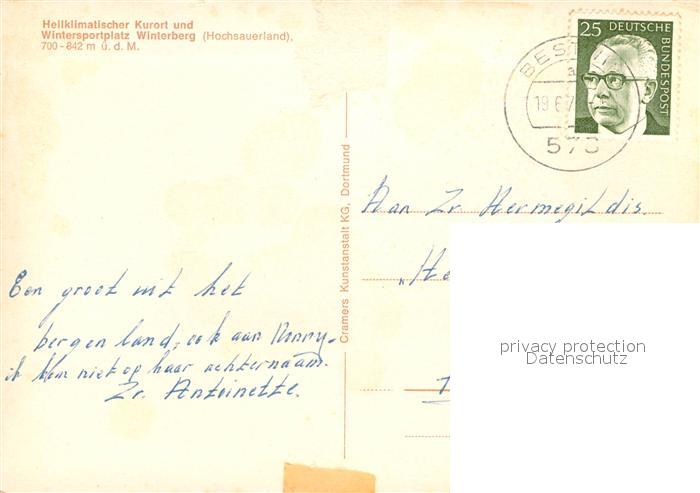 Heilklimatischer Kurort und
Wintersportplatz Winterberg (Hochsauerland),
700-842 m ü. d. M.
25 DEUTSCHE
BUNDESPOST
19.6.7
Cramers Kunstanstalt KG, Dortmund
Aan Zr. Hermegildis.
"He
Een groet uit het
bergenland, ook aan Ronny,
ik kom niet op haar achternaam.
Zr. Antoinette.
privacy protection
Datenschutz